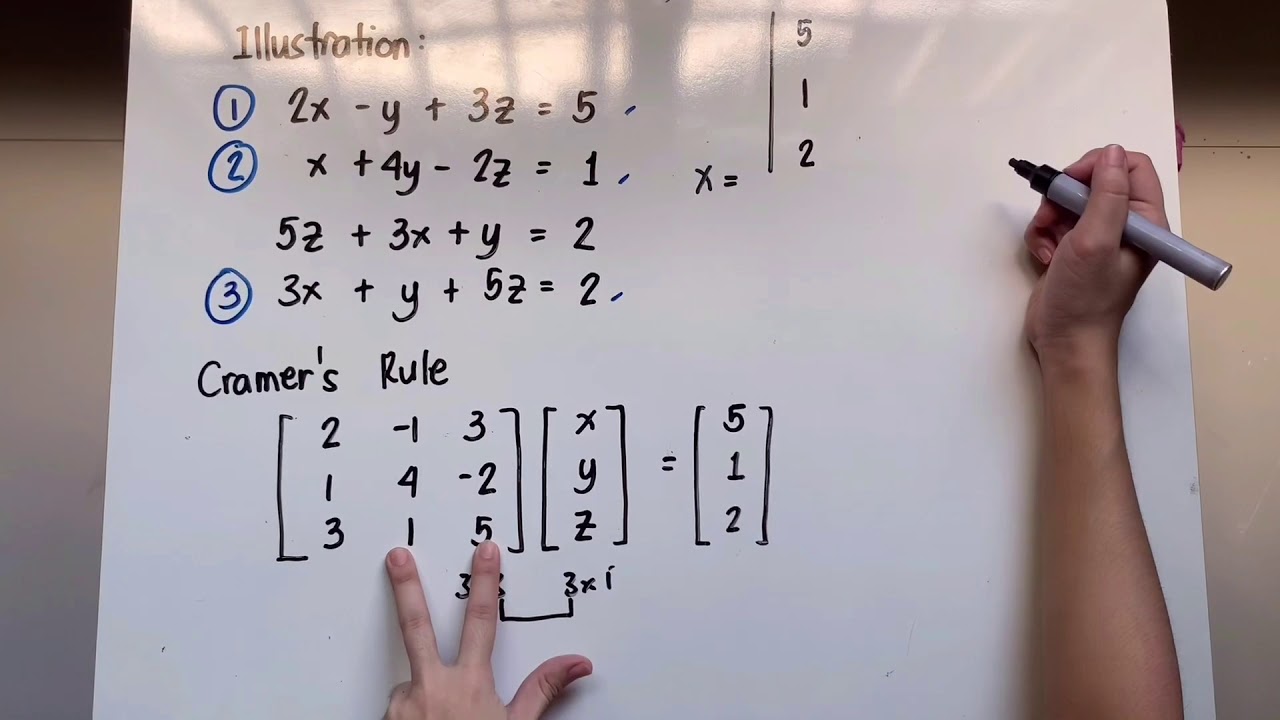 Illustration:
① 2x - y + 3z = 5
② x + 4y - 2z = 1
5z + 3x + y = 2
③ 3x + y + 5z = 2
| 5
| 1
| 2
x =
Cramer's Rule
[ 2 -1 3 ] [ x ] = [ 5 ]
[ 1 4 -2 ] [ y ] [ 1 ]
[ 3 1 5 ] [ z ] [ 2 ]
3x1